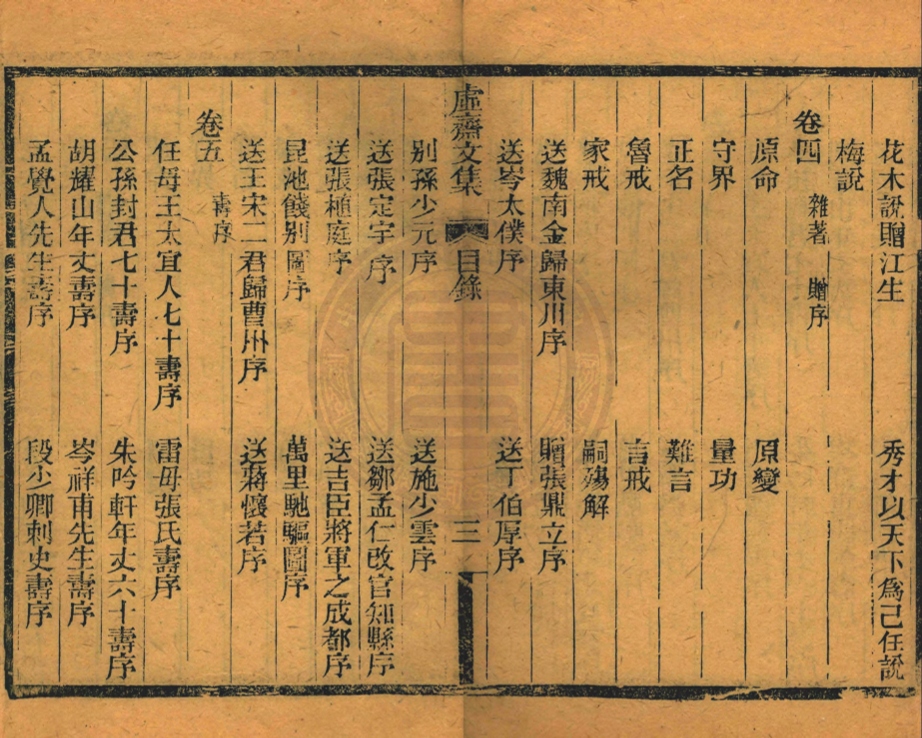 花木說贈江生　秀才以天下爲己任說
梅說
卷四　雜著　贈序
原命　原變
守界　量功
正名　難言
魯戒　言戒
家戒　嗣殤解
送魏南金歸東川序　贈張鼎立序
送岑太僕序　送丁伯厚序
虛齋文集　目錄　三
別孫少元序　送施少雲序
送張定宇序　送鄒孟仁改官知縣序
送張植庭序　送吉臣將軍之成都序
昆池餞別圖序　萬里馳驅圖序
送王宋二君歸曹州序　送蔣懷若序
卷五　壽序
任母王太宜人七十壽序　雷母張氏壽序
公孫封君七十壽序　朱吟軒年丈六十壽序
胡耀山年丈壽序　岑祥甫先生壽序
孟覺人先生壽序　段少卿刺史壽序